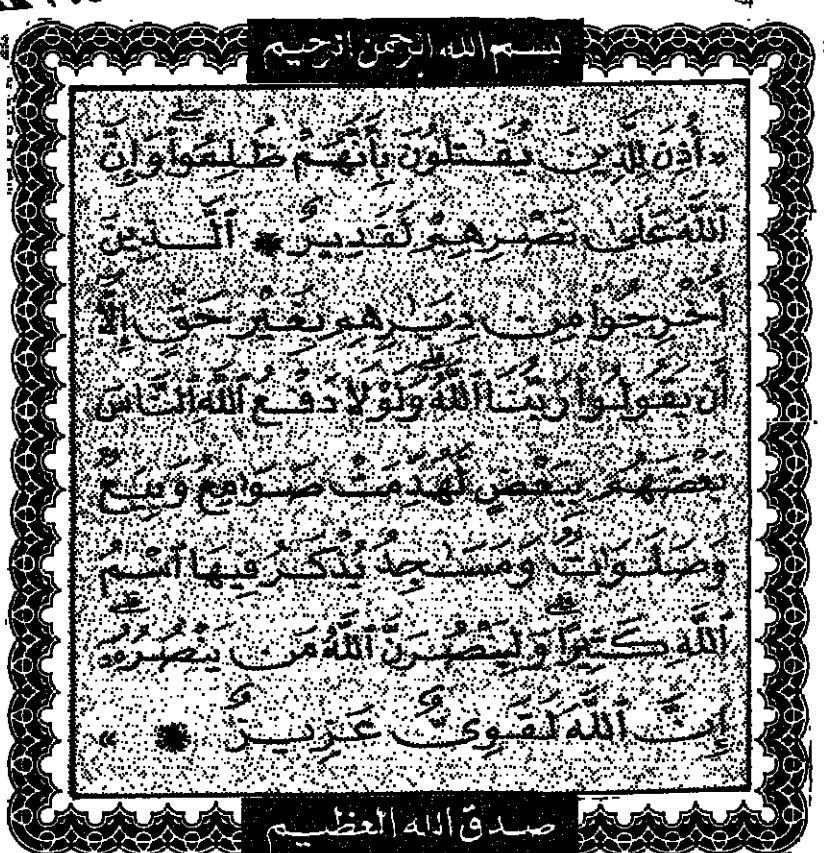 بسم الله الرحمن الرحيم
«أُذِنَ لِلَّذِينَ يُقَٰتَلُونَ بِأَنَّهُمْ ظُلِمُوا۟ وَإِنَّ
ٱللَّهَ عَلَىٰ نَصْرِهِمْ لَقَدِيرٌ * ٱلَّذِينَ
أُخْرِجُوا۟ مِن دِيَٰرِهِم بِغَيْرِ حَقٍّ إِلَّآ
أَن يَقُولُوا۟ رَبُّنَا ٱللَّهُ وَلَوْلَا دَفْعُ ٱللَّهِ ٱلنَّاسَ
بَعْضَهُم بِبَعْضٍ لَّهُدِّمَتْ صَوَٰمِعُ وَبِيَعٌ
وَصَلَوَٰتٌ وَمَسَٰجِدُ يُذْكَرُ فِيهَا ٱسْمُ
ٱللَّهِ كَثِيرًا وَلَيَنصُرَنَّ ٱللَّهُ مَن يَنصُرُهُۥٓ
إِنَّ ٱللَّهَ لَقَوِىٌّ عَزِيزٌ * »
صدق الله العظيم